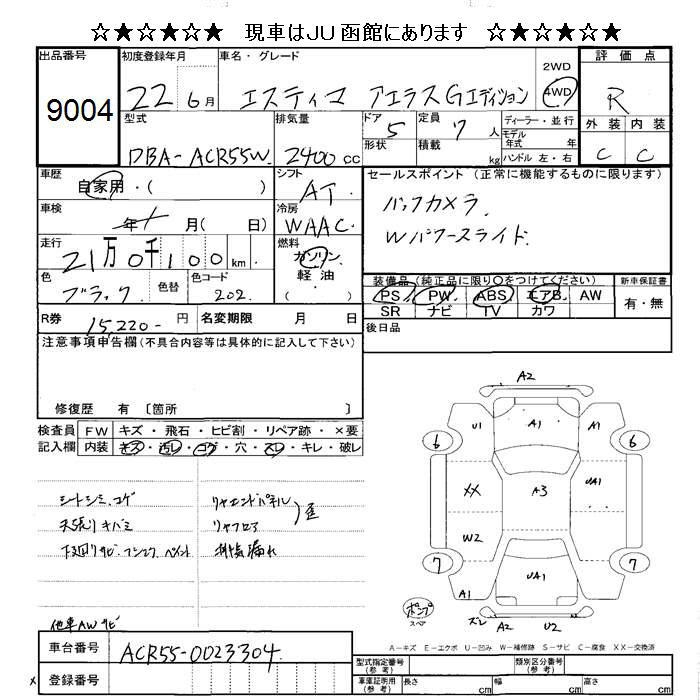 ☆★☆★☆★ 現車はJU函館にあります ☆★☆★☆★
出品番号 初度登録年月 車名・グレード 2WD 評価点
9004 22 6月 エスティマ アエラスGエディション 4WD R
型式 排気量 ドア 定員 ディーラー・並行 外装 内装
DBA-ACR55W 2400cc 5 7人 モデル年式 年
形状 積載 kg ハンドル 左・右 C C
車歴 自家用・( ) シフト AT セールスポイント (正常に機能するものに限ります)
車検 年 月( 日) 冷房 WAAC バックカメラ.
走行 21万0千100km 燃料 ガソリン・軽油・ Wパワースライド.
色 ブラック. 色替 色コード 202. 装備品(純正品に限り○をつけてください) 新車保証書
PS PW ABS エアB AW 有・無
SR ナビ TV カワ
R券 15,220- 円 名変期限 月 日 後日品
注意事項申告欄(不具合内容等は具体的に記入して下術)
修復歴 有 [箇所 ]
検査員 FW キズ・飛石・ヒビ割・リペア跡・×要
記入欄 内装 キズ・汚レ・コゲ・穴・スレ・キレ・破レ
シートシミ、コゲ リヤエンドパネル
天張りキバミ リヤフロア 歪
下廻りサビ、フシヨク、ペイント 排気漏れ
他車AWサビ
A2
U1 A1 A1
6 6
XX A3 UA1
W2
7 7
A1 UA1
ポンプ
スペア ズレ A2 U2
A-キズ E-エクボ U-凹み W-補修跡 S-サビ C-腐食 XX-交換済
車台番号 ACR55-0023304.
型式指定番号(参考) 類別区分番号(参考)
× 登録番号
車庫証明用(参考) 長さ cm 幅 cm 高さ cm